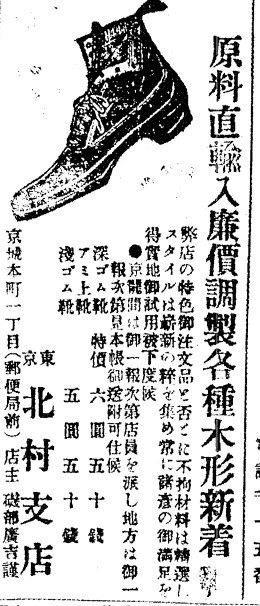 原料直輸入廉價調製各種木形新着
弊店の特色御注文品と否とに不拘材料は精選し
スタイルは嶄新の粹を集め常に諸彦の御滿足を
得實地御試用被下度候
●京龍間は御一報次第店員を派し地方は御一
報次第見本帳御送附可仕候
深ゴム靴 特價 六圓五十錢
アミ上靴
淺ゴム靴 五圓五十錢
東京 北村支店
京城本町一丁目(郵便局前) 店主 磯部廣吉謹